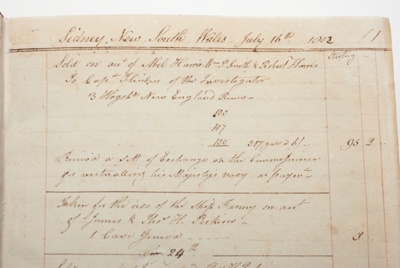 Sidney, New South Wales July 16th 1802 1
Sterling
Sold on acct of Mich Harris Wm P. Smith & Robert Harris
To Captn Flinders of the Investigator
3 Hogshds New England Rum
100
107
102 95 2
Receiv'd a set of Exchange on the Commissioners
for victualling his Majestys navy as paymt
Taken for the use of the Ship Fanny on acct
of James & Thos H. Perkins
1 Case Geneva 3
24th